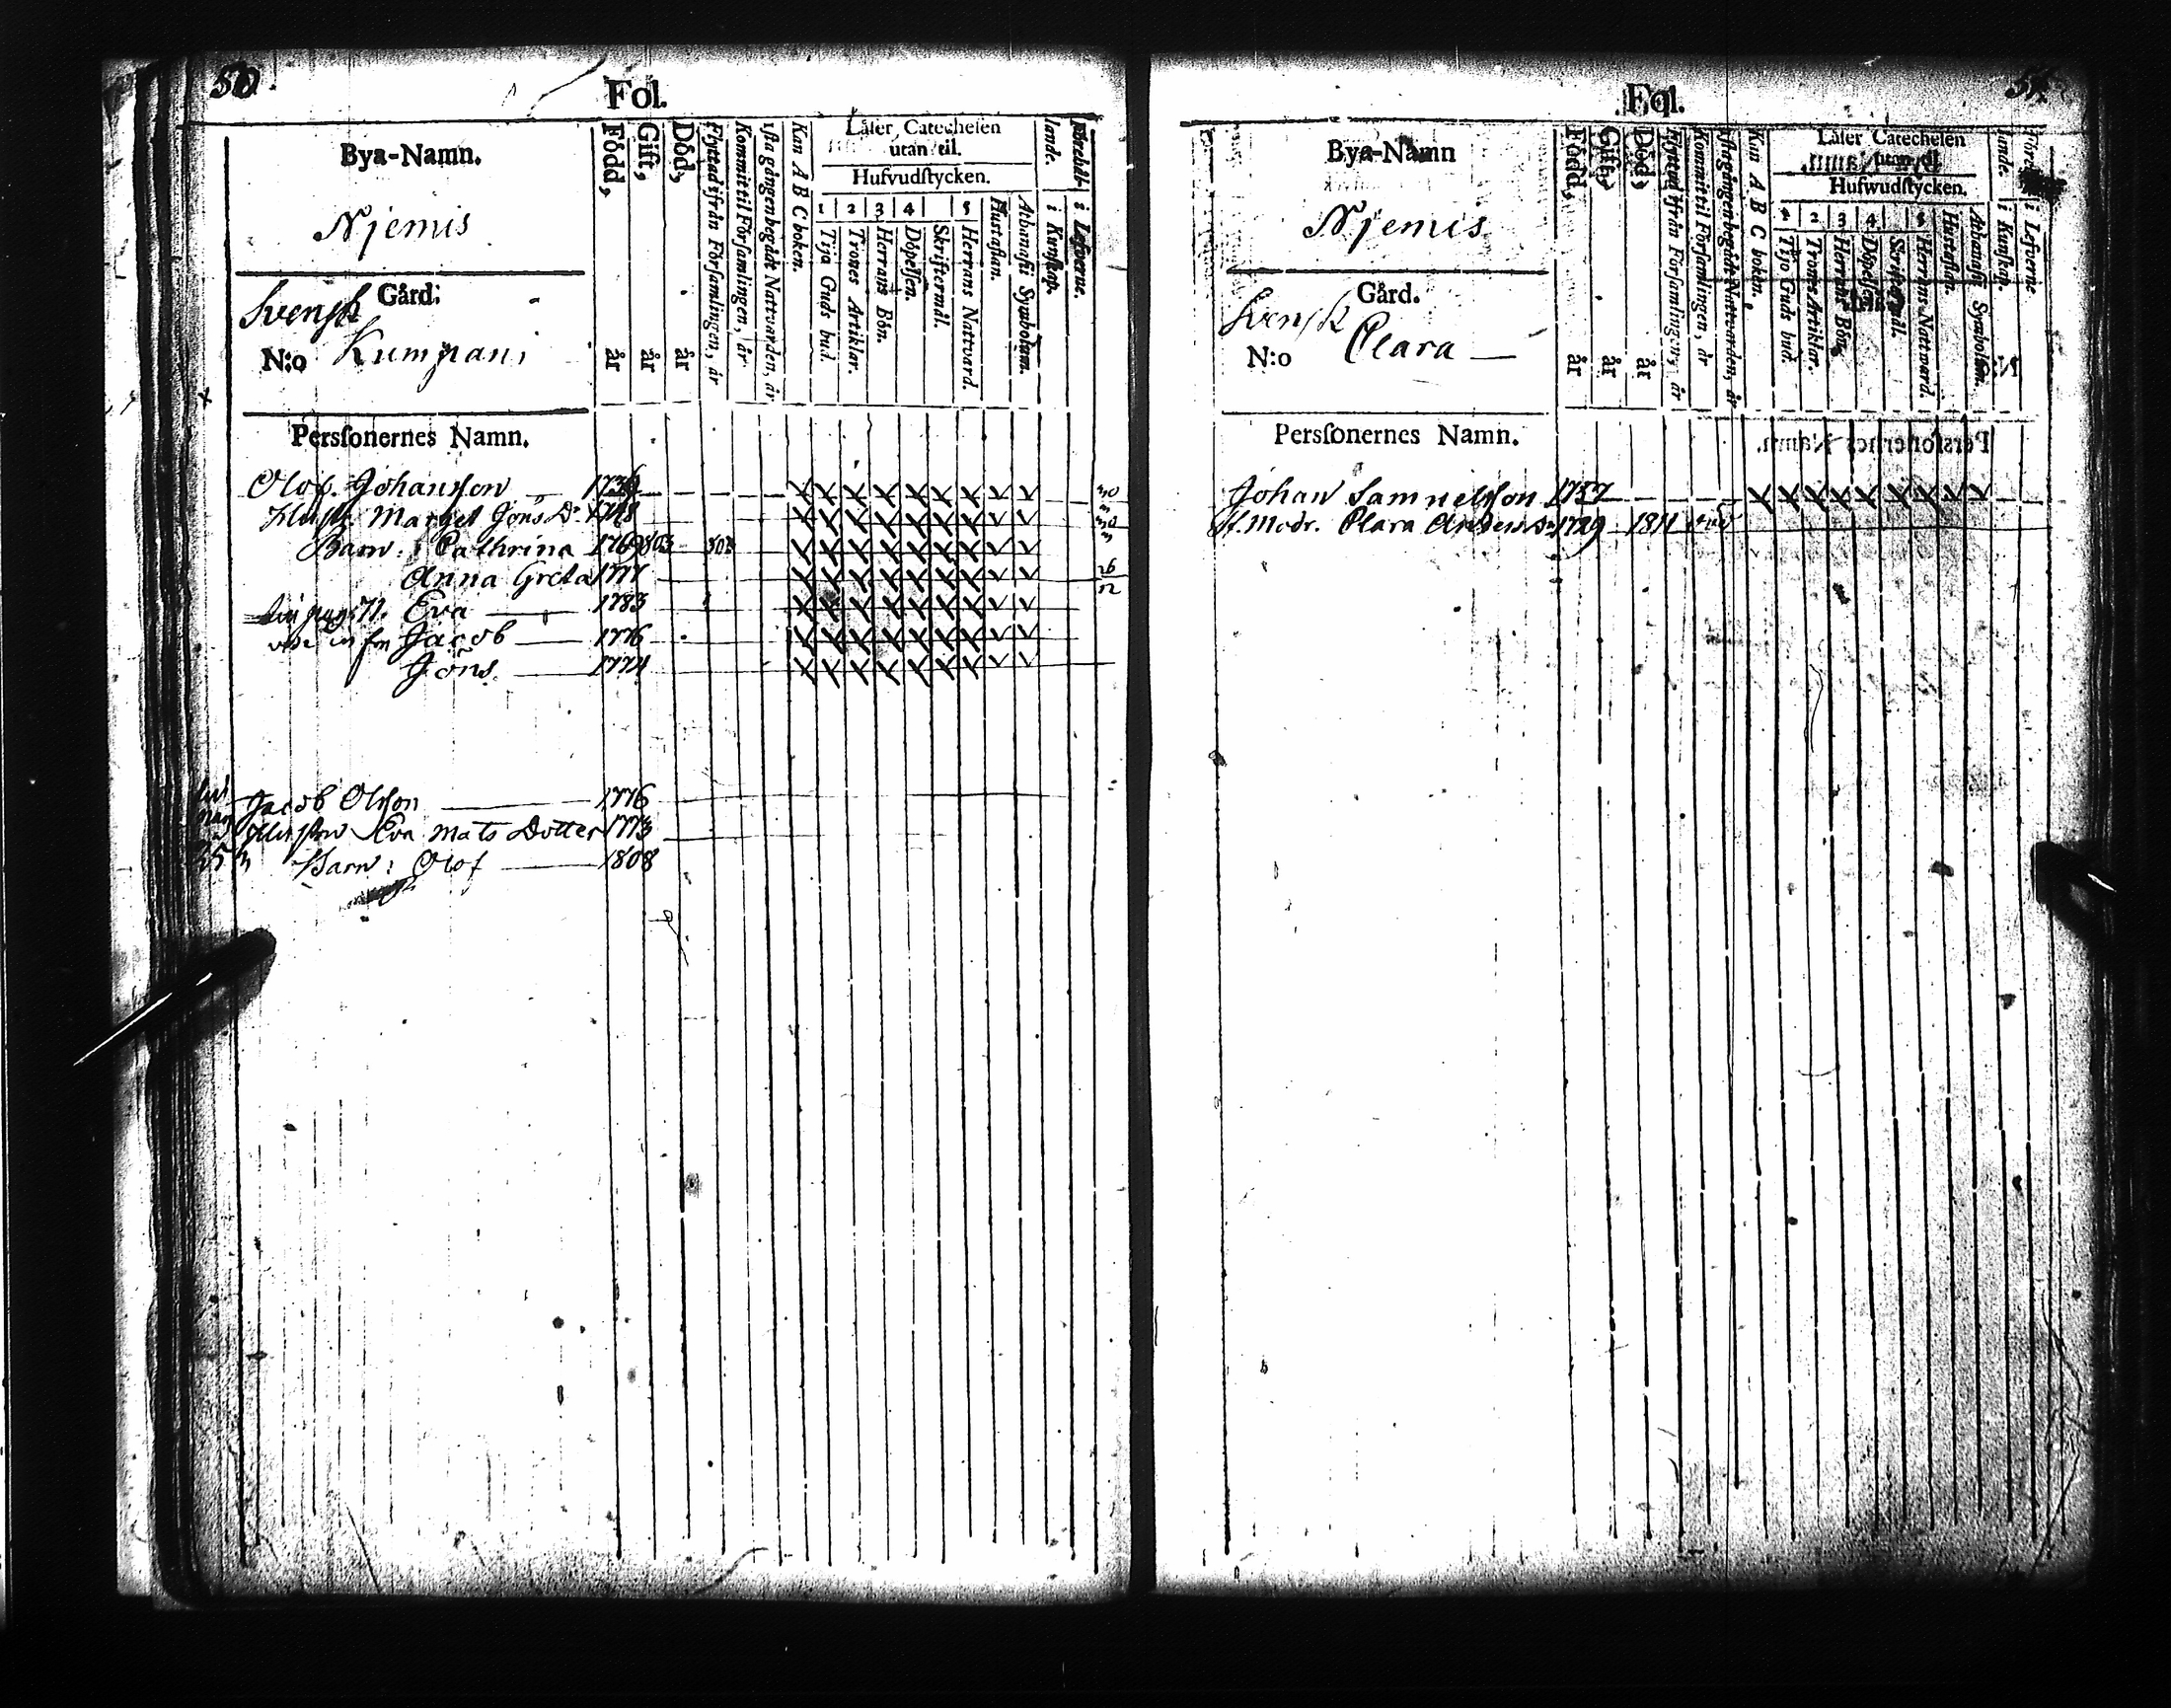 50.
Fol.
Bya-Namn.
Njemis
Gård.
Svensk
N:o Kumpani
Född, år
Gift, år
Död, år
Flyttad ifrån Församlingen, år
Kommit til Församlingen, år
1sta gången begådt Nattvarden, år
Kan A B C boken.
Läser Catechesen
utan til.
Hufvudstycken.
1 2 3 4 5
Tijo Guds bud.
Trones Artiklar.
Herrans Bön.
Döpelsen.
Skriftermål.
Herrans Nattvard.
Hustaflan.
Athanasii Symbolum.
Förehållande.
i Kunskap.
i Lefverne.
Perssonernes Namn.
Olof Johansson
Marget Jöns D:r
Barn: Cathrina 1769 803 803
Anna Greta 1777
Eva 1783
Jacob 1776
Jöns 1774
Jacob Olsson 1776
Hustrun Eva Mats Dotter 1773
Barn: Olof 1808
Fol.
Bya-Namn
Njemis
Gård.
Svensk
N:o Clara
Född, år
Gift, år
Död, år
Flyttad ifrån Församlingen, år
Kommit til Församlingen, år
1sta gången begådt Nattvarden, år
Kan A B C boken.
Läser Catechesen
utan til.
Hufwudstycken.
1 2 3 4 5
Tijo Guds bud.
Trones Artiklar.
Herrans Bön.
Döpelsen.
Skriftermål.
Herrans Nattward.
Hustaflan.
Athanasii Symbolum.
i Kunskap.
i Lefverne
Perssonernes Namn.
Johan Samuelsson 1757
Modr. Clara Anders 1729 1811